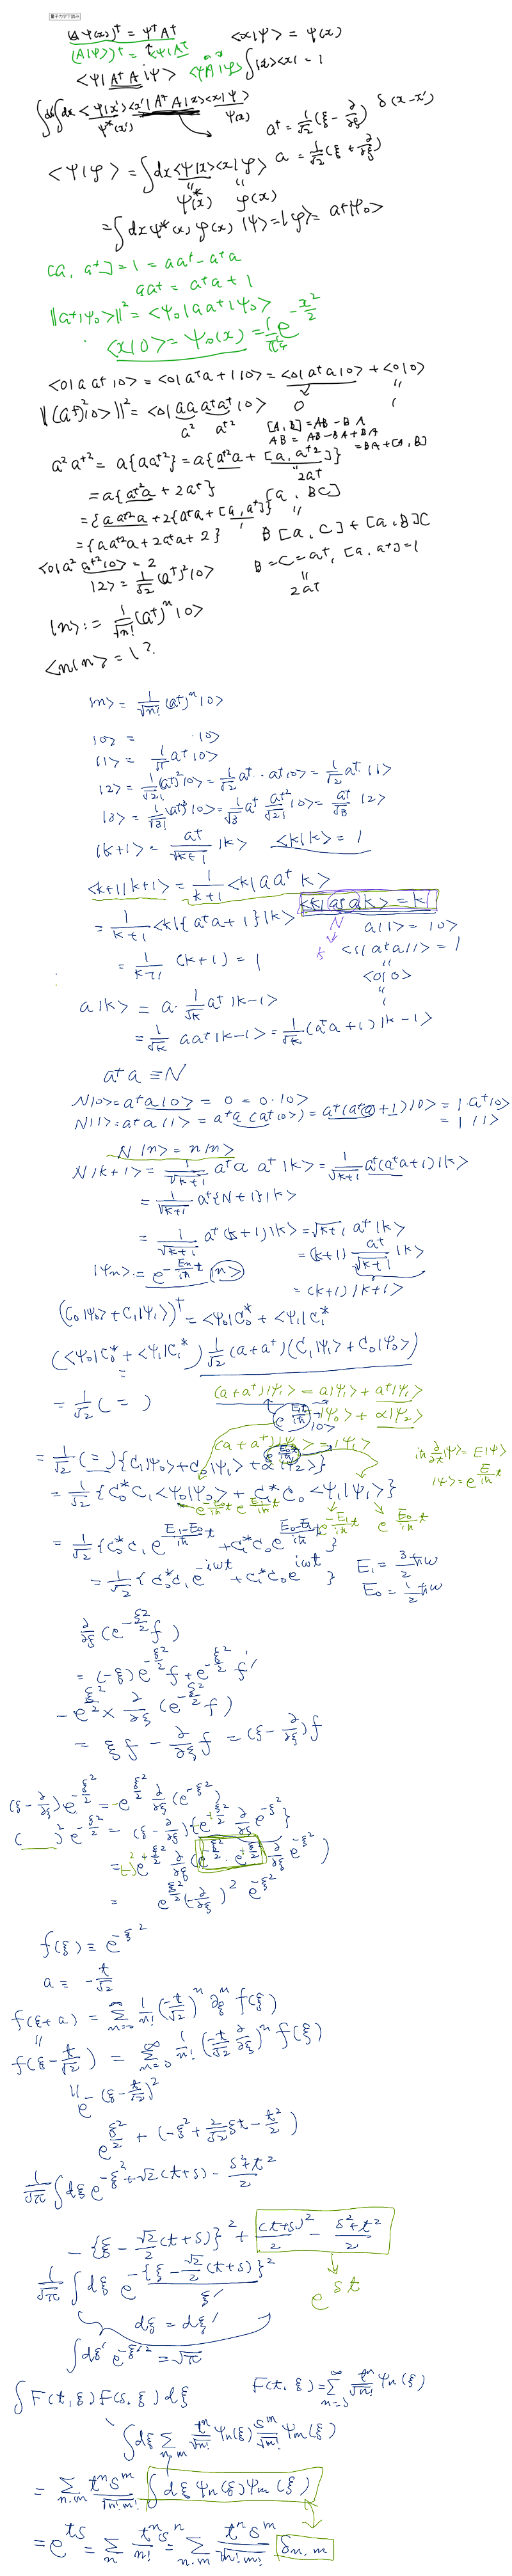 (Aψ(x))† = ψ†A†
<x|ψ> = ψ(x)
(A|ψ>)† = <ψ|A†
<ψ|A†A|ψ> <ψA|ψ> ∫|x><x| = 1
∫dx'∫dx <ψ|x'><x'|A†A|x><x|ψ>
ψ*(x') ψ(x)
a† = 1/√2 (ξ - ∂/∂ξ) δ(x-x')
<ψ|φ> = ∫dx<ψ|x><x|φ> a = 1/√2 (ξ + ∂/∂ξ)
ψ*(x) φ(x)
= ∫dx ψ*(x) φ(x) |ψ> = |φ> = a†|ψ₀>
[a, a†] = 1 = aa† - a†a
aa† = a†a + 1
||a†|ψ₀>||² = <ψ₀|aa†|ψ₀>
<x|0> = ψ₀(x) = 1/π^¼ e^{-x²/2}
<0|aa†|0> = <0|a†a+1|0> = <0|a†a|0> + <0|0>
0 1
||(a†)²|0>||² = <0|aaa†a†|0>
a² a†²
[A,B] = AB - BA
AB = AB - BA + BA
= BA + [A,B]
a²a†² = a{aa†²} = a{a†²a + [a, a†²]}
2a†
= a{a†²a + 2a†} [a, BC]
= {aa†²a + 2{a†a + [a, a†]}
B[a,C] + [a,B]C
= {aa†²a + 2a†a + 2}
B = C = a†, [a, a†] = 1
2a†
<0|a²a†²|0> = 2
|2> = 1/√2 (a†)²|0>
|n> := 1/√n! (a†)ⁿ|0>
<n|n> = 1?
|n> = 1/√n! (a†)ⁿ|0>
|0> = |0>
|1> = 1/√1 a†|0>
|2> = 1/√2! (a†)²|0> = 1/√2 a†・a†|0> = 1/√2 a†|1>
|3> = 1/√3! (a†)³|0> = 1/√3 a† a†²/√2! |0> = a†/√3 |2>
|k+1> = a†/√(k+1) |k> <k|k> = 1
<k+1|k+1> = 1/(k+1) <k|aa†|k>
<k|a†a|k> = k
N
k
= 1/(k+1) <k|{a†a+1}|k>
a|1> = |0>
<1|a†a|1> = 1
<0|0>
1
= 1/(k+1) (k+1) = 1
a|k> = a・1/√k a†|k-1>
= 1/√k aa†|k-1> = 1/√k (a†a+1)|k-1>
a†a ≡ N
N|0> = a†a|0> = 0 = 0・|0>
N|1> = a†a|1> = a†a(a†|0>) = a†(a†a+1)|0> = 1・a†|0>
= 1|1>
N|n> = n|n>
N|k+1> = 1/√(k+1) a†a a†|k> = 1/√(k+1) a†(a†a+1)|k>
= 1/√(k+1) a†{N+1}|k>
= 1/√(k+1) a†(k+1)|k> = √(k+1) a†|k>
= (k+1) a†/√(k+1) |k>
= (k+1)|k+1>
|ψn> := e^{En/iℏ t}|n>
(C₀|ψ₀> + C₁|ψ₁>)† = <ψ₀|C₀* + <ψ₁|C₁*
(<ψ₀|C₀* + <ψ₁|C₁*) 1/√2 (a+a†)(C₁|ψ₁> + C₀|ψ₀>)
= 1/√2 ( = )
(a+a†)|ψ₁> = a|ψ₁> + a†|ψ₁>
|ψ₀> + α|ψ₂>
|0>
(a+a†)|ψ₀> = |ψ₁>
= 1/√2 ( = ){C₁|ψ₀> + C₀|ψ₁> + α|ψ₂>}
iℏ ∂/∂t |ψ> = E|ψ>
|ψ> = e^{E/iℏ t}
= 1/√2 {C₀*C₁<ψ₀|ψ₀> + C₁*C₀<ψ₁|ψ₁>}
e^{-E₁/iℏ t} e^{E₀/iℏ t}
= 1/√2 {C₀*C₁ e^{(E₁-E₀)/iℏ t} + C₁*C₀ e^{(E₀-E₁)/iℏ t}}
= 1/√2 {C₀*C₁ e^{-iωt} + C₁*C₀ e^{iωt}}
E₁ = 3/2 ℏω
E₀ = 1/2 ℏω
∂/∂ξ (e^{-ξ²/2} f)
= (-ξ) e^{-ξ²/2} f + e^{-ξ²/2} f'
- e^{ξ²/2} × ∂/∂ξ (e^{-ξ²/2} f)
= ξf - ∂/∂ξ f = (ξ - ∂/∂ξ) f
(ξ - ∂/∂ξ) e^{-ξ²/2} = -e^{ξ²/2} ∂/∂ξ (e^{-ξ²})
( )² e^{-ξ²/2} = (ξ - ∂/∂ξ){e^{+ξ²/2} ∂/∂ξ e^{-ξ²}}
= (-)² e^{+ξ²/2} ∂/∂ξ (e^{-ξ²/2}・e^{+ξ²/2} ∂/∂ξ e^{-ξ²})
= e^{ξ²/2} (-∂/∂ξ)² e^{-ξ²}
f(ξ) = e^{-ξ²}
a = -t/√2
f(ξ+a) = Σ_{n=0}^∞ 1/n! (-t/√2)ⁿ ∂ξⁿ f(ξ)
f(ξ - t/√2) = Σ_{n=0}^∞ 1/n! (-t/√2 ∂/∂ξ)ⁿ f(ξ)
e^{-(ξ - t/√2)²}
e^{ξ²/2 + (-ξ² + 2/√2 ξt - t²/2)}
1/√π ∫dξ e^{-ξ² + √2(t+s) - (s²+t²)/2}
-{ξ - √2/2 (t+s)}² + (t+s)²/2 - (s²+t²)/2
1/√π ∫dξ e^{-{ξ - √2/2 (t+s)}²}
ξ'
e^{st}
dξ = dξ'
∫dξ' e^{-ξ'²} = √π
∫F(t,ξ)F(s,ξ)dξ F(t,ξ) = Σ_{n=0}^∞ tⁿ/√n! ψn(ξ)
∫dξ Σ_{n,m} tⁿ/√n! ψn(ξ) sᵐ/√m! ψm(ξ)
= Σ_{n,m} tⁿsᵐ/√n!m! ∫dξ ψn(ξ)ψm(ξ)
= e^{ts} = Σ_n tⁿsⁿ/n! = Σ_{n,m} tⁿsᵐ/√n!m! δ_{n,m}